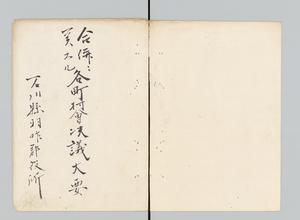 合併ニ
関スル各町村会決議大要
石川縣羽咋郡役所